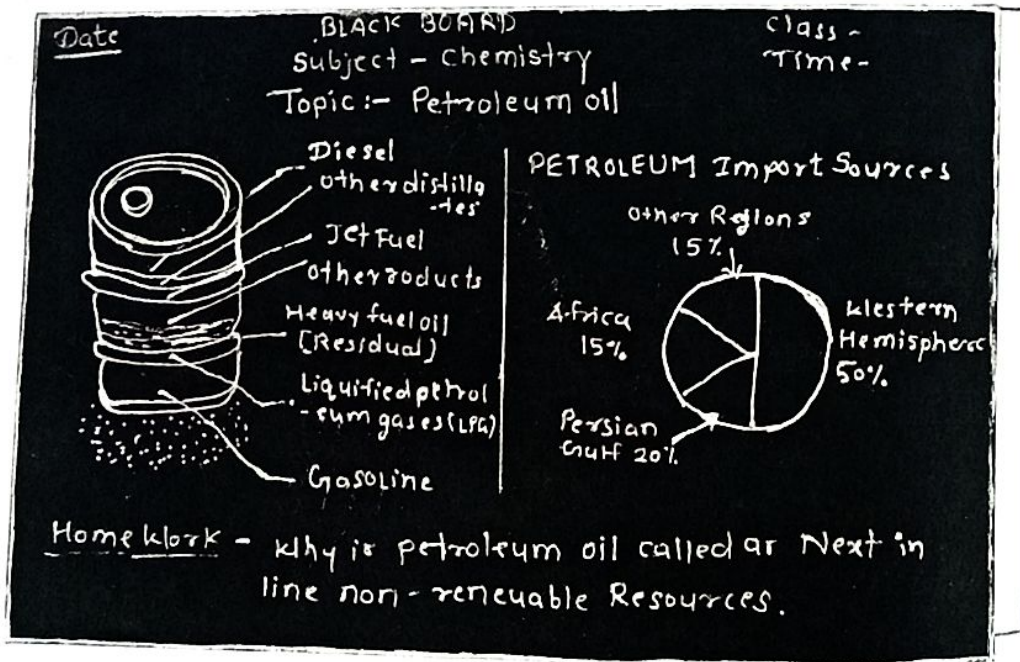 Date
BLACK BOARD
Class -
Subject - Chemistry
Time -
Topic :- Petroleum oil
Diesel
other distilla
-tes
Jet Fuel
other roducts
Heavy fuel oil
[Residual)
Liquified petrol
-eum gases (LPG)
Gasoline
PETROLEUM Import Sources
Other Regions
15%
Africa
15%
Western
Hemisphere
50%
Persian
Gulf 20%
Home Work - Why is petroleum oil called as Next in
line non-renewable Resources.